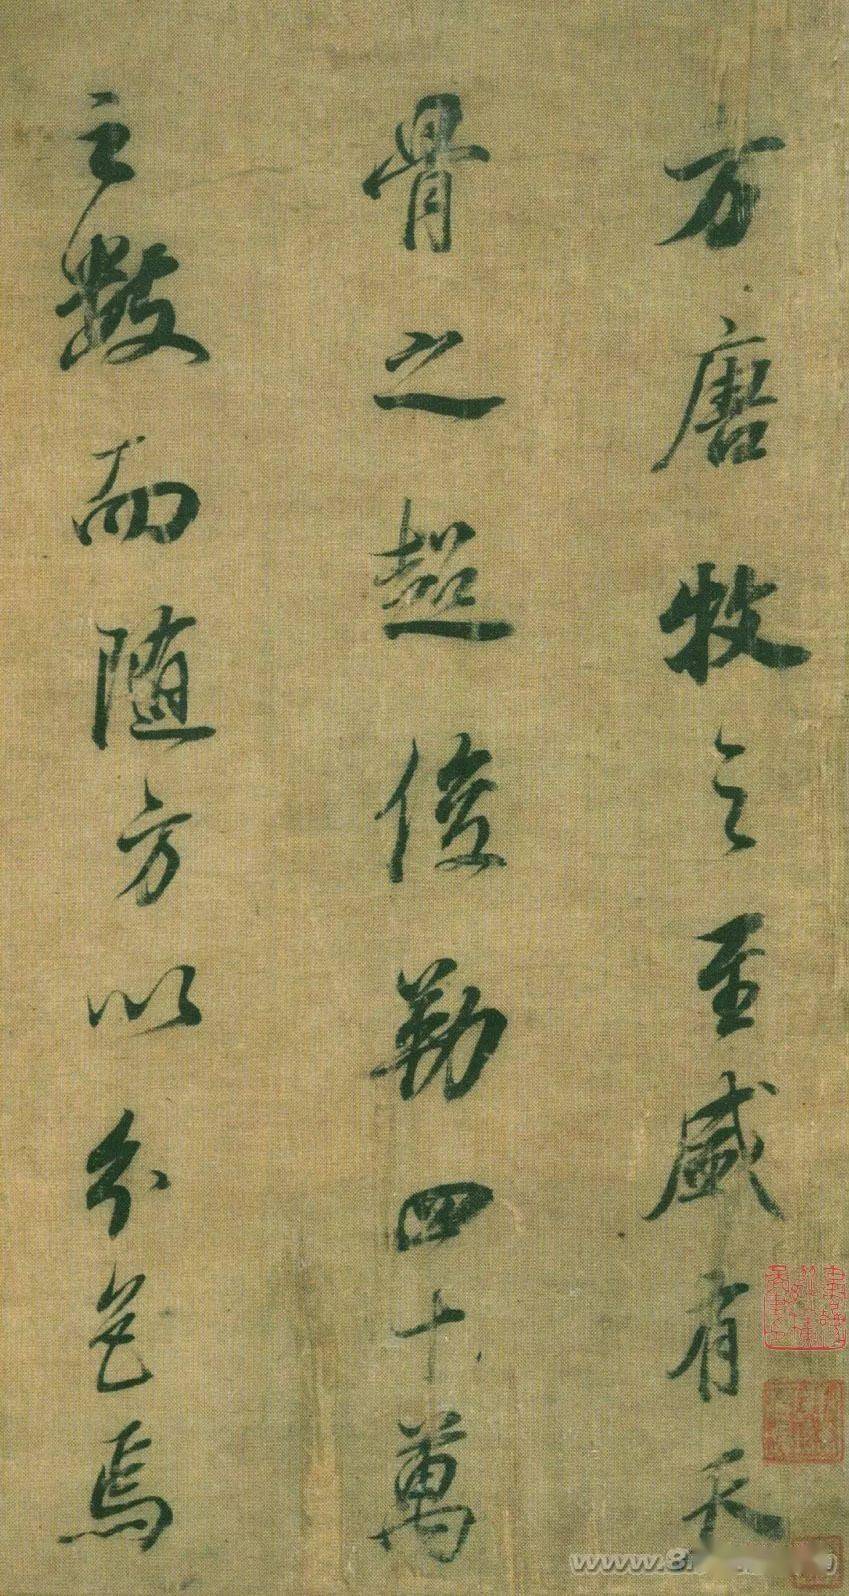 方唐牧之至盛有天
骨之超俊勒四十萬
之數而隨方以分色焉